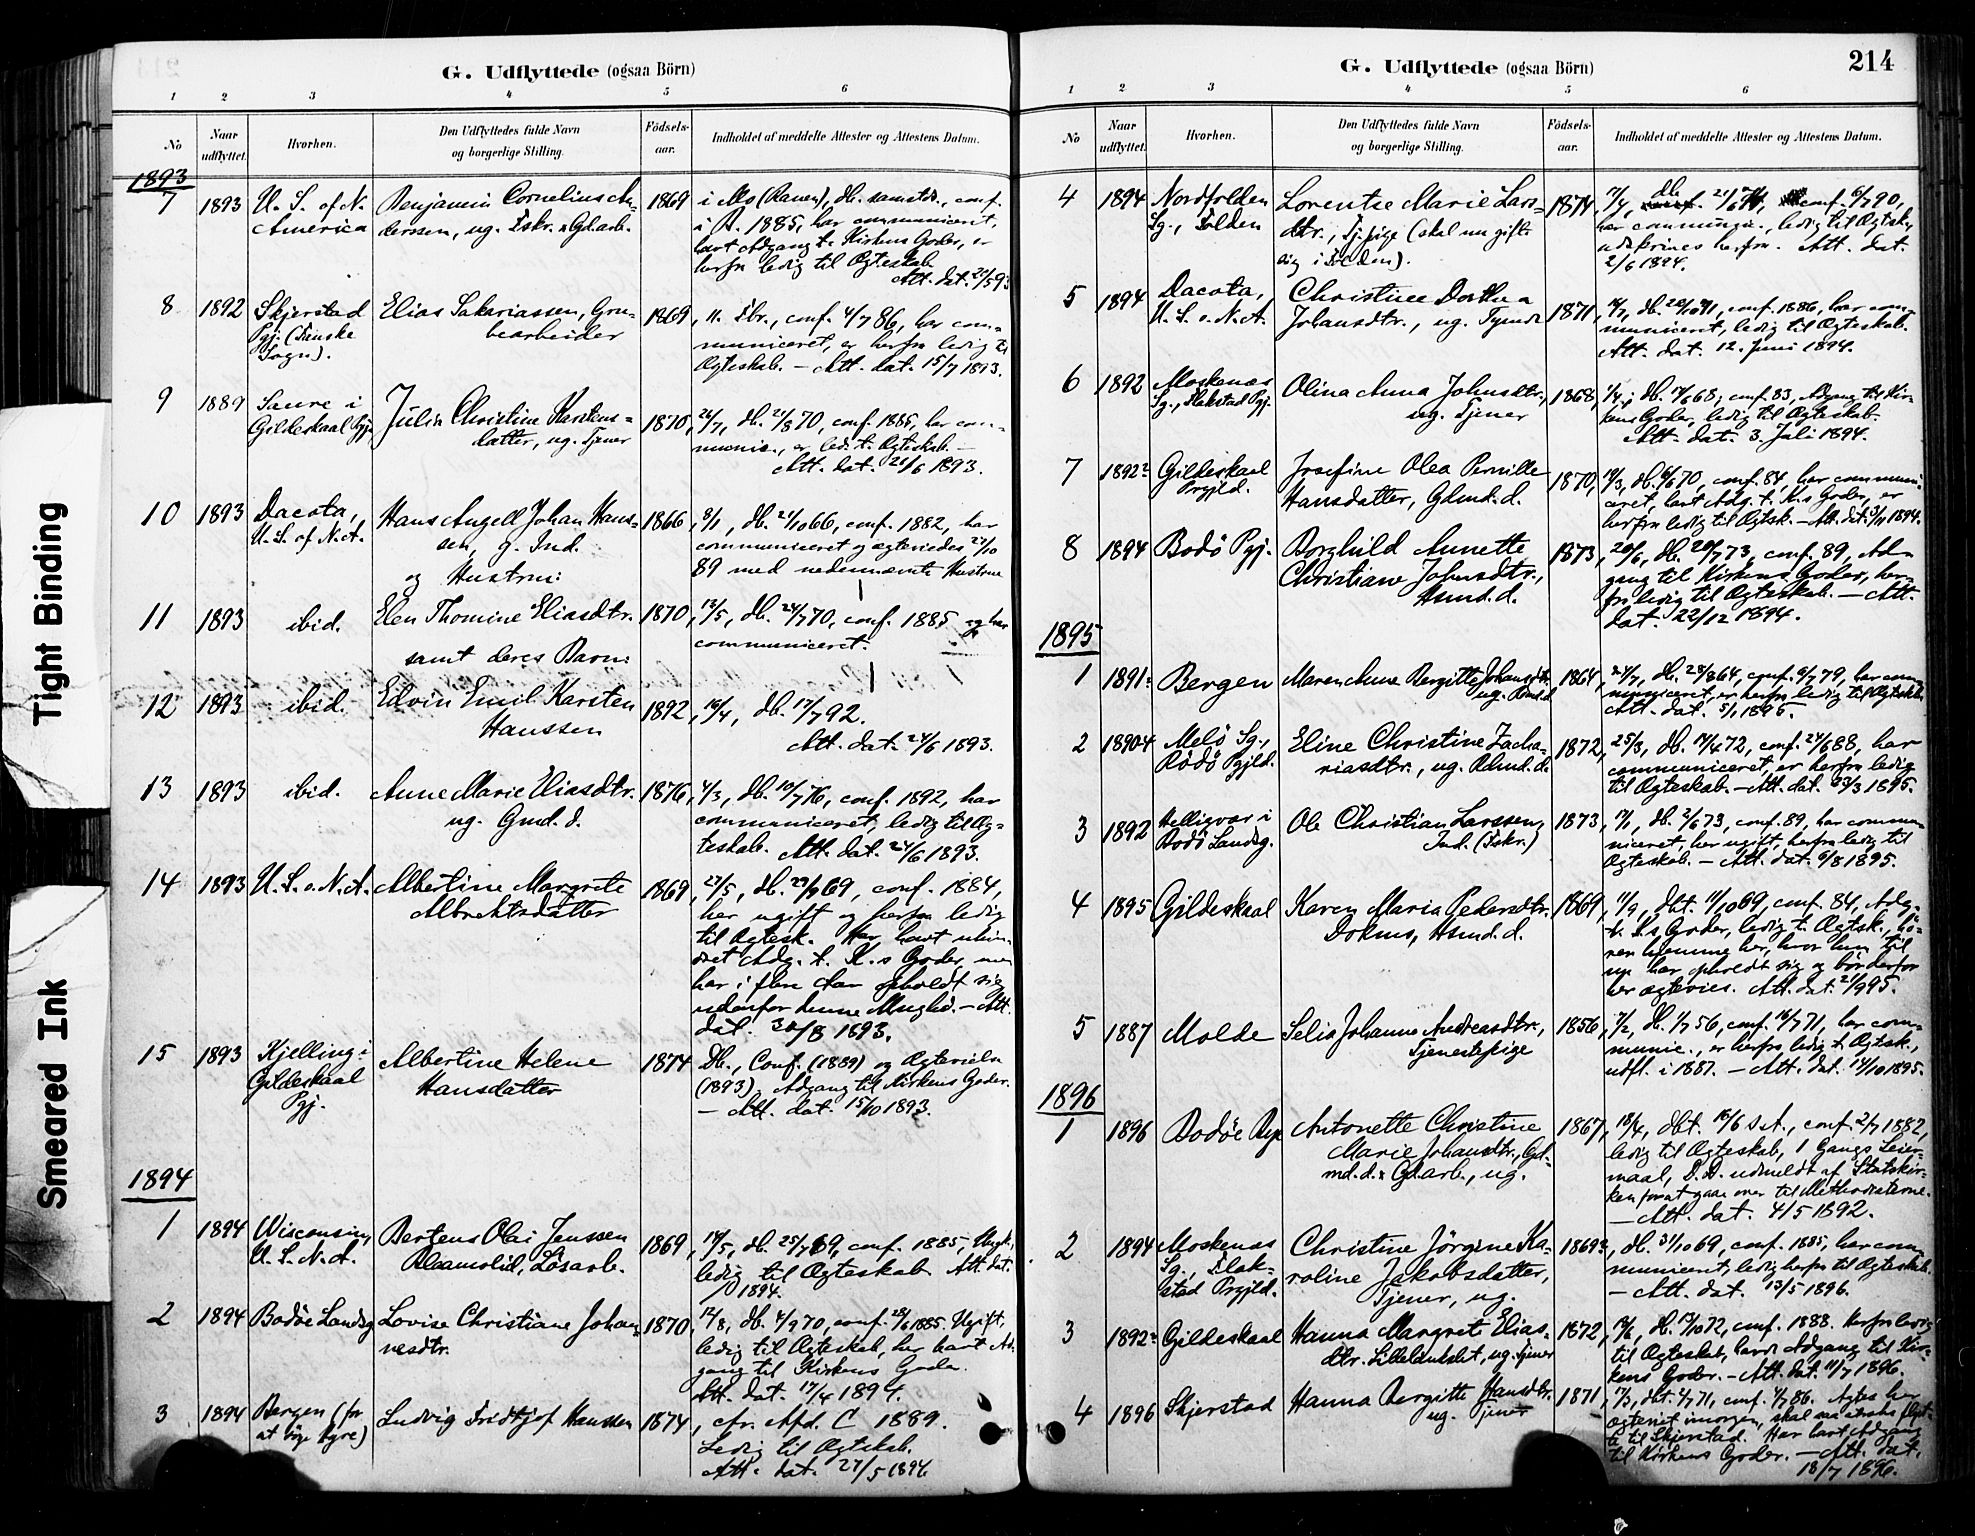 G. Udflyttede (ogsaa Börn)
1 2 3 4 5 6
No
Naar udflyttet.
Hvorhen.
Den Udflyttedes fulde Navn og borgerlige Stilling.
Födsels-aar.
Indholdet af meddelte Attester og Attestens Datum.
1893
7 1893 U. S. of N. America
Benjamin Cornelius Anderssen, ug. Fskr. & Gdarb.
1869
i Mo (Ranen), db. sammstds., conf.
i B. 1885, har communiceret,
havt Adgang t. Kirkens Goder, er
herfra ledig til Ægteskab.
Att. dat. 21/5 93
8 1892 Skjerstad Pgj. (Fauske Sogn).
Elias Sakariassen, Grubearbeider
1869
, conf. 4/7 86, har com-
municeret, er herfra ledig til
Ægteskab. – Att. dat. 15/7 1893.
9 1889 Saure i Gildeskaal Pgj.
Julie Christine Karstensdatter, ug. Tjener
1870
, 26/7, db. 21/8 70, conf. 1885, har com-
munic., er led. t. Ægteskab. –
Att. dat. 21/6 1893.
10 1893 Dacota, U. S. of N. A.
Hans Angell Johan Hanssen, g. Ind.
og Hustru:
1866
, 8/1, db. 21/10 66, conf. 1882, har
communiceret og ægteviedes 27/10
89 med nedennævnte Hustrue
11 1893 ibid.
Elen Thomine Eliasdtr.
samt deres Barn:
1870
, 12/5, db. 24/7 70, conf. 1885 og har
communiceret.
12 1893 ibid.
Edvin Emil Karsten Hanssen
1892
, 10/4, db. 17/7 92.
Att. dat. 24/6 1893.
13 1893 ibid.
Anne Marie Eliasdtr. ug. Gmd. d.
1876
, 4/3, db. 10/7 76, conf. 1892, har
communiceret, ledig til Æg-
teskab. Att. dat. 24/6 1893.
14 1893 U. S. o. N. A.
Albertine Margrete Albrektsdatter
1869
, 27/5, db. 29/7 69, conf. 1884,
her ugift og herfra ledig
til Ægtesk. Har havt uhin-
dret Adg. t. K.s Goder, men
har i flere Aar opholdt sig
udenfor denne Menighed. – Att.
dat. 30/8 1893.
15 1893 Kjelling i Gildeskaal Pgj.
Albertine Helene Hansdatter
1874
Db., Conf. (1889) og Ægtevielse
(1893), Adgang til Kirkens Goder.
– Att. dat. 15/10 1893.
1894
1 1894 Wisconsin, U. S. N. A.
Bertens Olai Jenssen Blaamolid, Løsarb.
1869
, 14/5, db. 25/7 69, conf. 1885, Ungk.,
ledig til Ægteskab. Att. dat.
1894.
2 1894 Bodøe Landsg
Lovise Christiane Johannesdtr.
1870
, 12/8, db. 4/9 70, conf. 28/6 1885. Ugift,
ledig til Ægteskab, har havt Ad-
gang til Kirkens Goder.
Att. dat. 17/4 1894.
3 1894 Bergen (for at tage Hyre)
Ludvig Fridtjof Hanssen
1874
, cfr. Afd. C 1889.
Ledig til Ægteskab.
Att. dat. 27/5 1894
G. Udflyttede (ogsaa Börn)
214
1 2 3 4 5 6
No
Naar udflyttet.
Hvorhen.
Den Udflyttedes fulde Navn og borgerlige Stilling.
Födsels-aar.
Indholdet af meddelte Attester og Attestens Datum.
4 1894 Nordfolden Sg., Folden
Lorentse Marie Larsdtr., Tj.pige (skal nu gifte sig i Folden).
1874
, 7/4, db. 21/6 74, conf. 6/7 90,
har communic., ledig til Ægtsk.,
udskrives herfra. Att. dat.
2/6 1894.
5 1894 Dacota, U. S. o. N. A.
Christine Dorthea Johansdtr., ug. Tjener
1871
, db. 20/10 71, conf. 1886, har com-
municeret, ledig til Ægteskab.
Att. dat. 12. Juni 1894.
6 1892 Moskenæs Sg., Flakstad Pgj.
Olina Anna Johnsdtr., ug. Tjener
1868
, 1/4, db. 17/6 68, conf. 83, Adgang til Kir-
kens Goder, ledig til Ægteskab.
Att. dat. 3. Juli 1894.
7 1892? Gildeskaal Prgjld.
Josefine Olea Pernille Hansdatter, Gdmd. d.
1870
, 19/3, db. 6/6 70, conf. 84, har communi-
ceret, havt Adg. t. K.s Goder, er
herfra ledig til Ægtsk. – Att. dat. 3/11 1894.
8 1894 Bodö Pgj.
Borghild Annette Christiane Johnsdtr., Hsmd. d.
1873
, 20/6, db. 20/7 73, conf. 89, Ad-
gang til Kirkens Goder, her-
fra ledig til Ægteskab. – Att.
dat. 22/12 1894.
1895
1 1891? Bergen
Maren Anne Bergitte Johansdtr. ug.
1864
, 24/7, db. 28/8 64, conf. 6/7 79, har com-
municeret, er herfra ledig til Ægteskab.
Att. dat. 5/1 1895.
2 1890-4 Melö Sg., Rödö Pgjld.
Eline Christine Zachariasdtr., ug.
1872
, 25/3, db. 14/4 72, conf. 24/6 88, har
communiceret, er herfra ledig
til Ægteskab. – Att. dat. 23/3 1895.
3 1892 Helligvær i Bodö Landsg.
Ole Christian Larssen, Ind. (Fskr.)
1873
, 17/1, db. 2/6 73, conf. 89, har commu-
niceret, her ugift, herfra ledig til
Ægteskab. – Att. dat. 6/8 1895.
4 1895 Gildeskaal
Karen Maria Pedersdtr. Dokmo, Hsmd. d.
1869
, 11/9, dbt. 11/10 69, conf. 84, Adg.
t. K.s Goder, ledig t. Ægtsk., hö-
rer hjemme her, hvor hun til
nu har opholdt sig og bör derfor
her ægtevies. Att. dat. 21/9 95.
5 1887 Molde
Selia Johanne Andreasdtr., Tjenestepige
1856
, 7/2, db. 1/7 56, conf. 16/7 71, har com-
munic., er herfra ledig t. Ægtsk.,
udfl. i 1887. – Att. dat. 14/10 1895.
1896
1 1896 Bodöe
Antonette Christine Marie Johansdtr., Gdmd. d. & Gdarb., ug.
1867
, 18/4, dbt. 16/6 s. A., conf. 2/7 1882,
ledig til Ægteskab, 1 Gangs Leier-
maal, D. D. udmeldt af Statskir-
ken for at gaae over til Methodisterne.
– Att. dat. 4/5 1892.
2 1894 Moskenæs Sg., Flakstad Prgjld.
Christine Jörgine Karoline Jakobsdatter, Tjener, ug.
1869
, db. 31/10 69, conf. 1885, har com-
municeret, ledig herfra til Ægteskab.
– Att. dat. 13/5 1896.
3 1892? Gildeskaal
Hanna Margrete Eliasdtr. ug. Tjener
1872
, 19/6, db. 13/10 72, conf. 1888. Herfra ledig
til Ægteskab, havt Adgang til Kir-
kens Goder. – Att. dat. 11/7 1896.
4 1896 Skjerstad
Hanna Bergitte Hansdtr. ug. Tjener
1871
, 17/3, dbt. 4/7 71, conf. 4/7 86. Agtes her
ægteviet imorgen, skal nu strax flyt-
te til Skjerstad. Har havt Adgang
til Kirkens Goder. – Att. dat.
18/7 1896.
Tight Binding
Smeared Ink